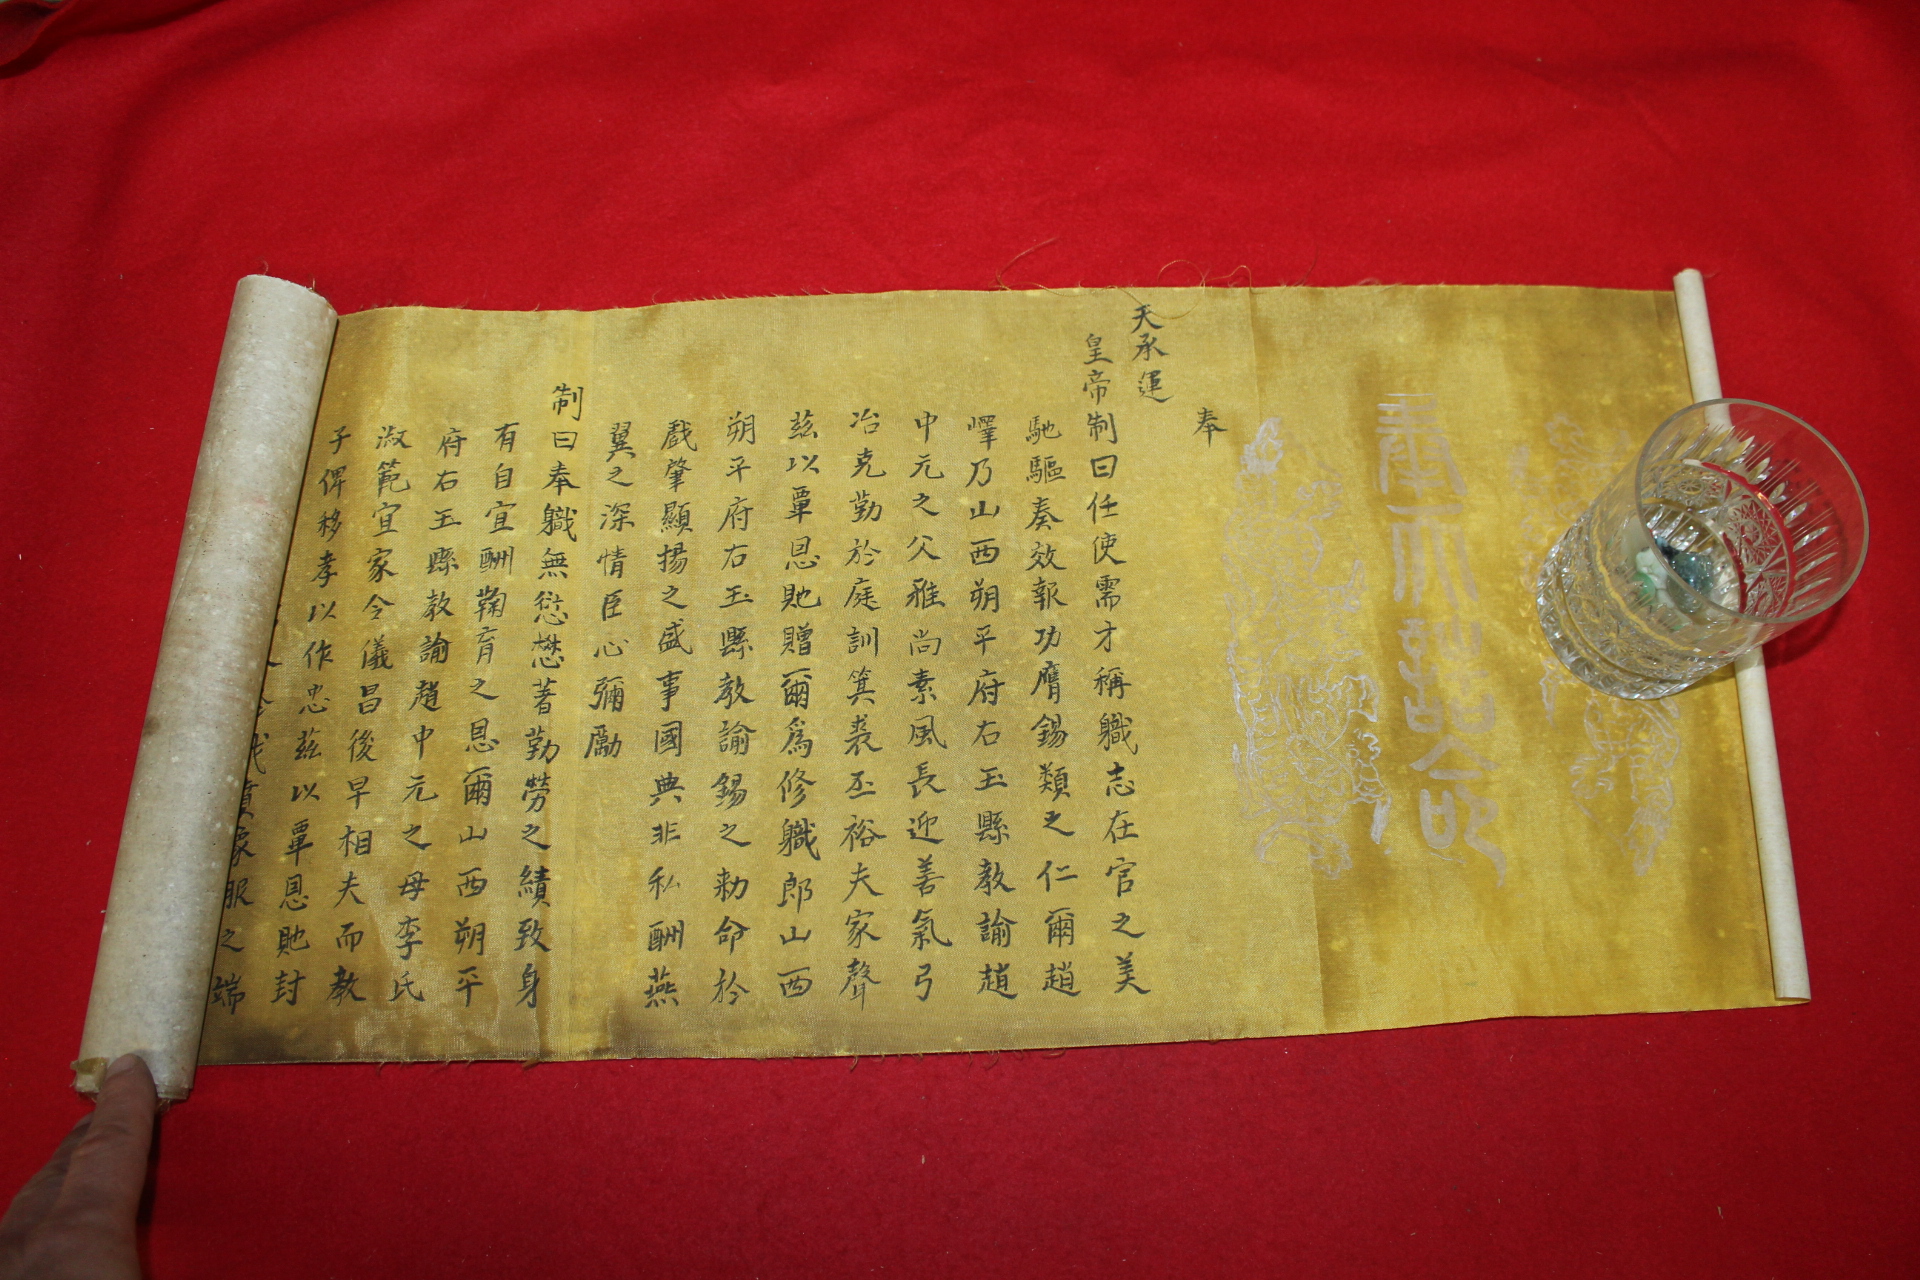 奉天誥命
奉
天承運
皇帝制曰任使需才稱職志在官之美
馳驅奏效報功膺錫類之仁爾趙
嶧乃山西朔平府右玉縣教諭趙
中元之父雅尚素風長迎善氣弓
冶克勤於庭訓箕裘丕裕夫家聲
茲以覃恩貤贈爾爲修職郎山西
朔平府右玉縣教諭錫之勅命於
戲肇顯揚之盛事國典非私酬燕
翼之深情臣心彌勵
制曰奉職無愆懋著勤勞之績致身
有自宜酬鞠育之恩爾山西朔平
府右玉縣教諭趙中元之母李氏
淑範宜家令儀昌後早相夫而教
子俾移孝以作忠茲以覃恩貤封
服之端